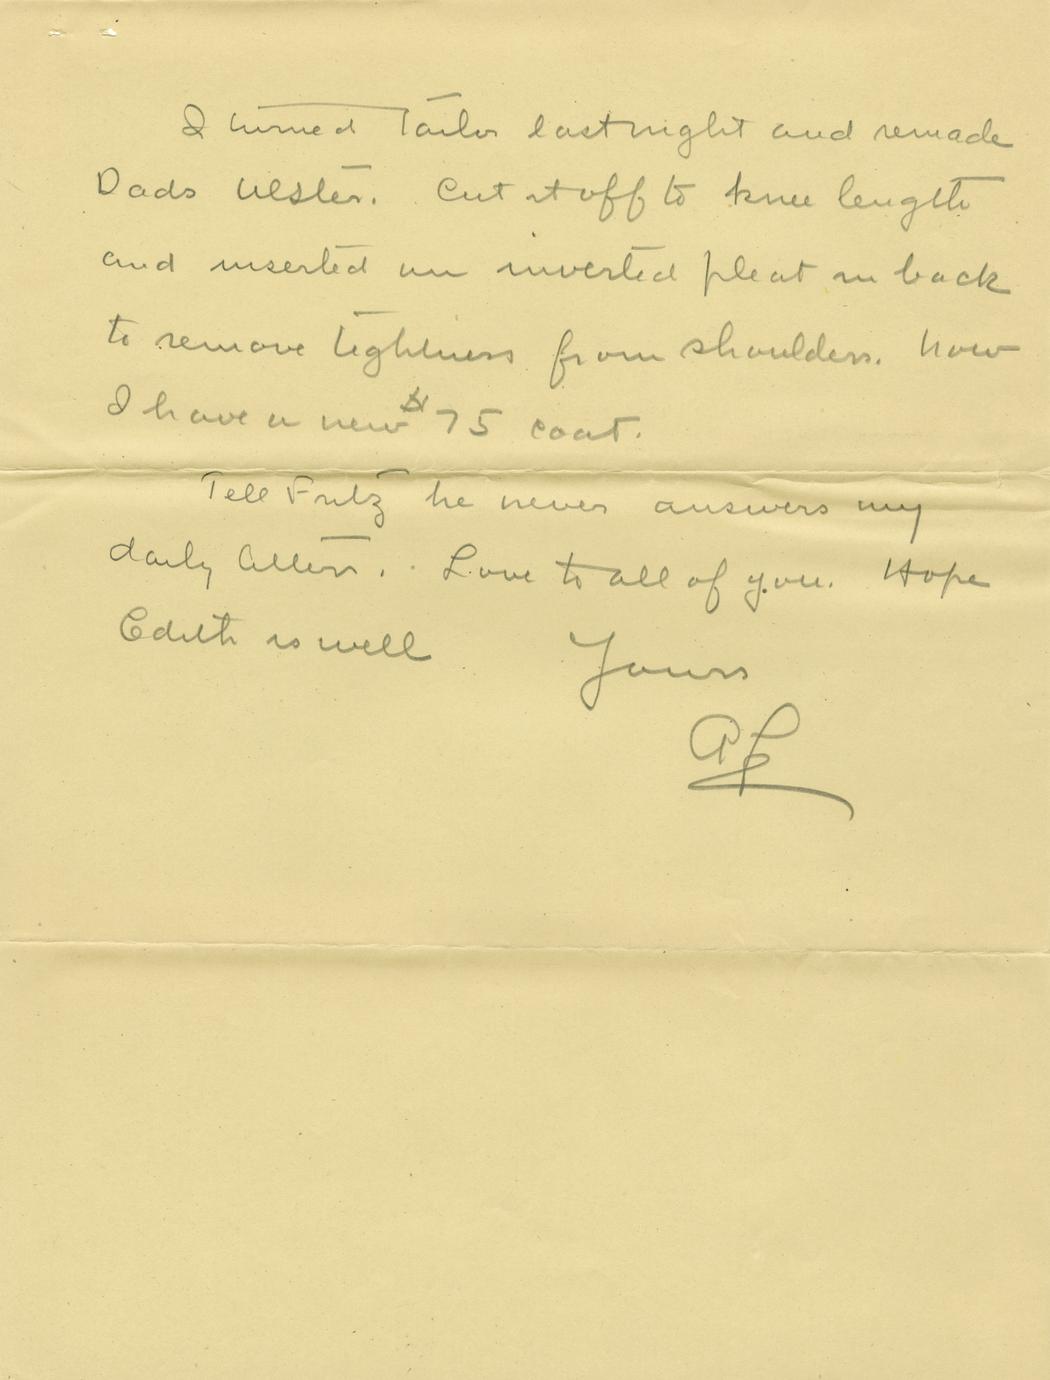 I turned Tailor last night and remade
Dads Ulster. Cut it off to knee length
and inserted an inverted pleat in back
to remove tightness from shoulders. Now
I have a new $75 coat.
Tell Fritz he never answers my
daily letters. Love to all of you. Hope
Edith is well Yours